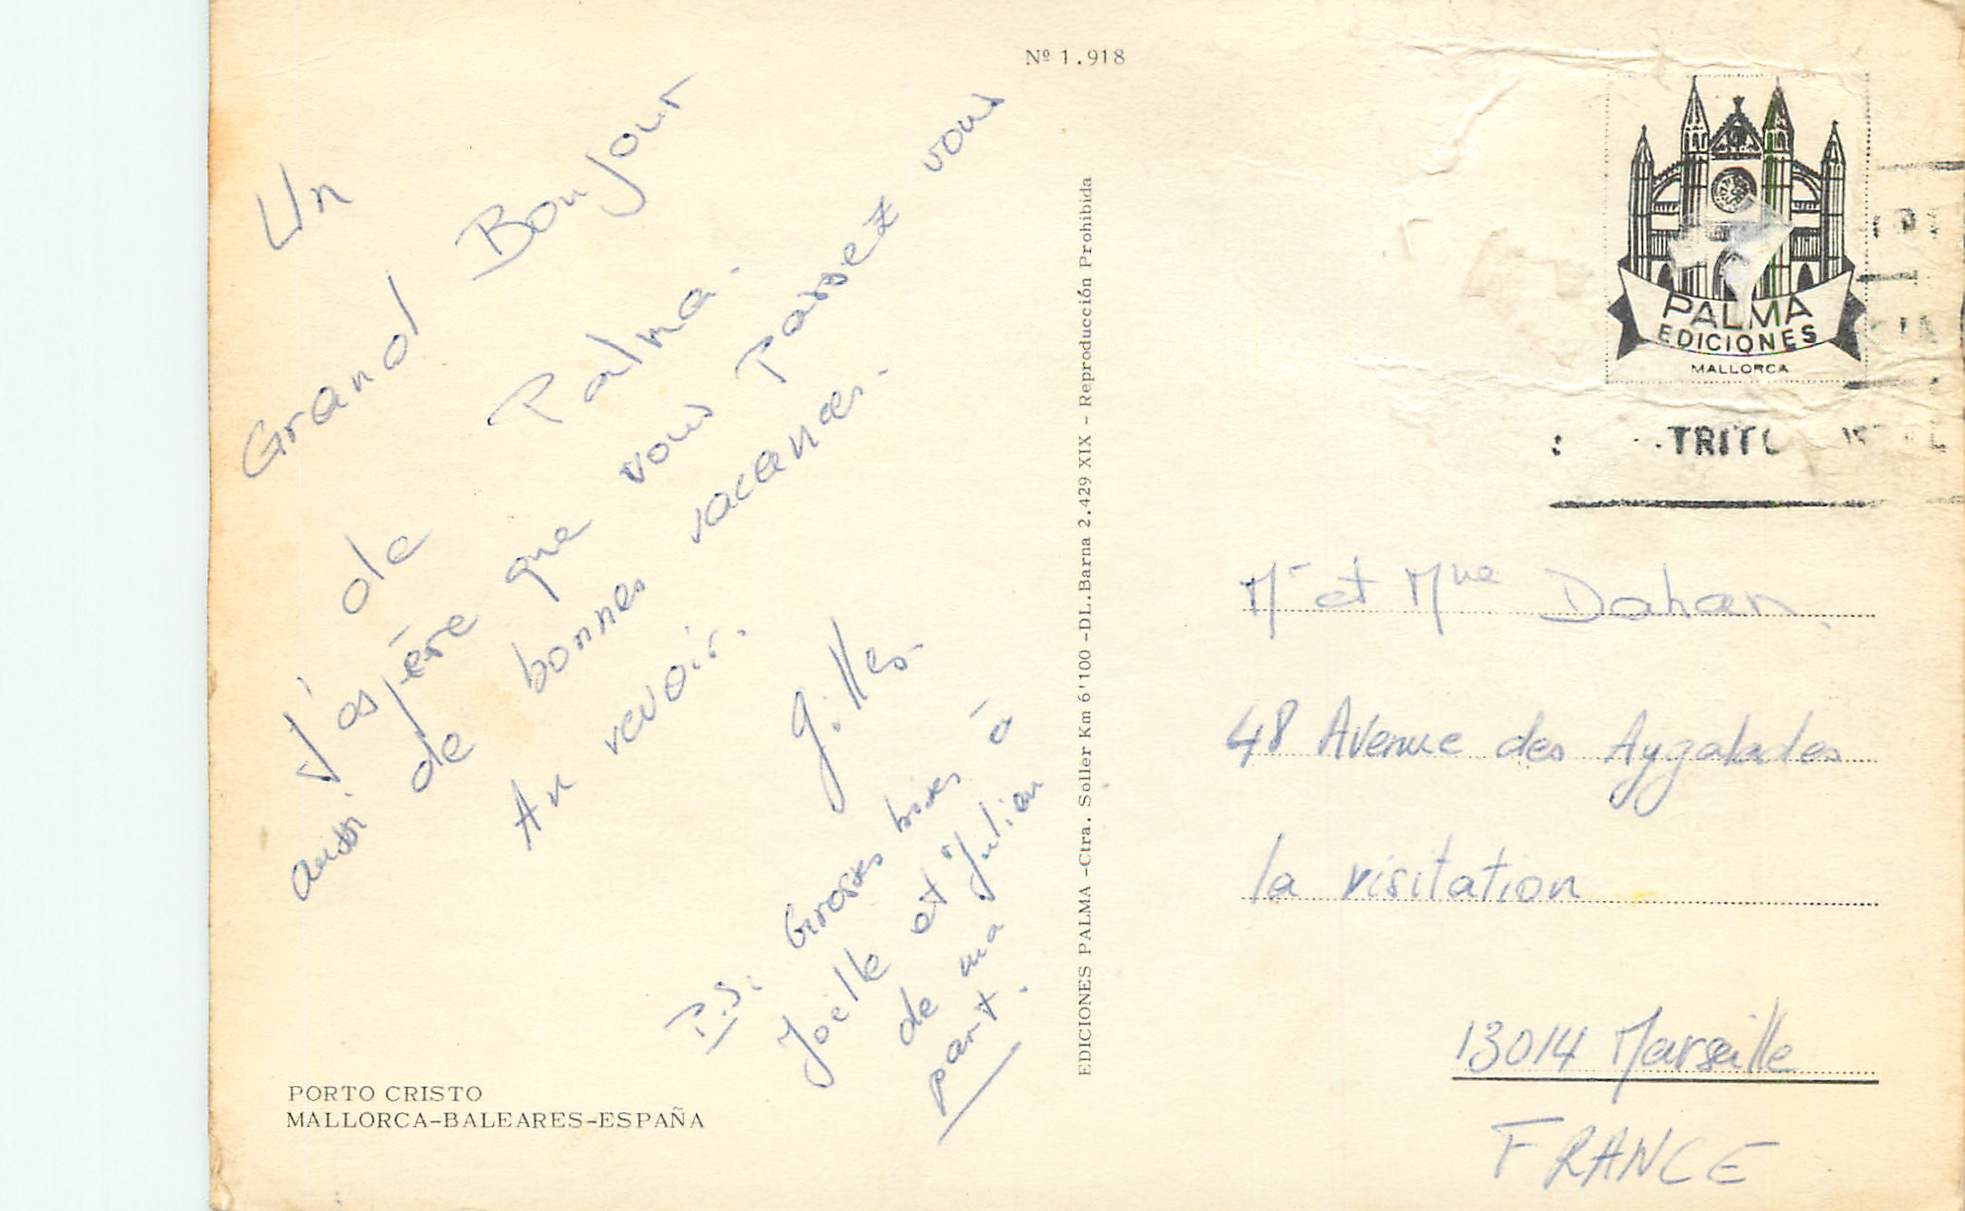 Nº 1.918
Un
Grand Bonjour
de Palma.
J'espère que vous Passez vous
aussi de bonnes vacances.
Au revoir.
Gilles
P.S: Grosses bises à
Joëlle et Julien
de ma
part.
PORTO CRISTO
MALLORCA-BALEARES-ESPAÑA
EDICIONES PALMA -Ctra. Soller Km 6'100 -DL. Barna 2.429 XIX - Reproducción Prohibida
PALMA
EDICIONES
MALLORCA
Mr et Mme Dahan
48 Avenue des Aygalades
la visitation
13014 Marseille
FRANCE